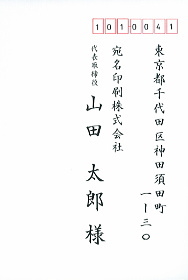 1010041
東京都千代田区神田須田町
一ー三〇
宛名印刷株式会社
代表取締役
山田 太郎 様